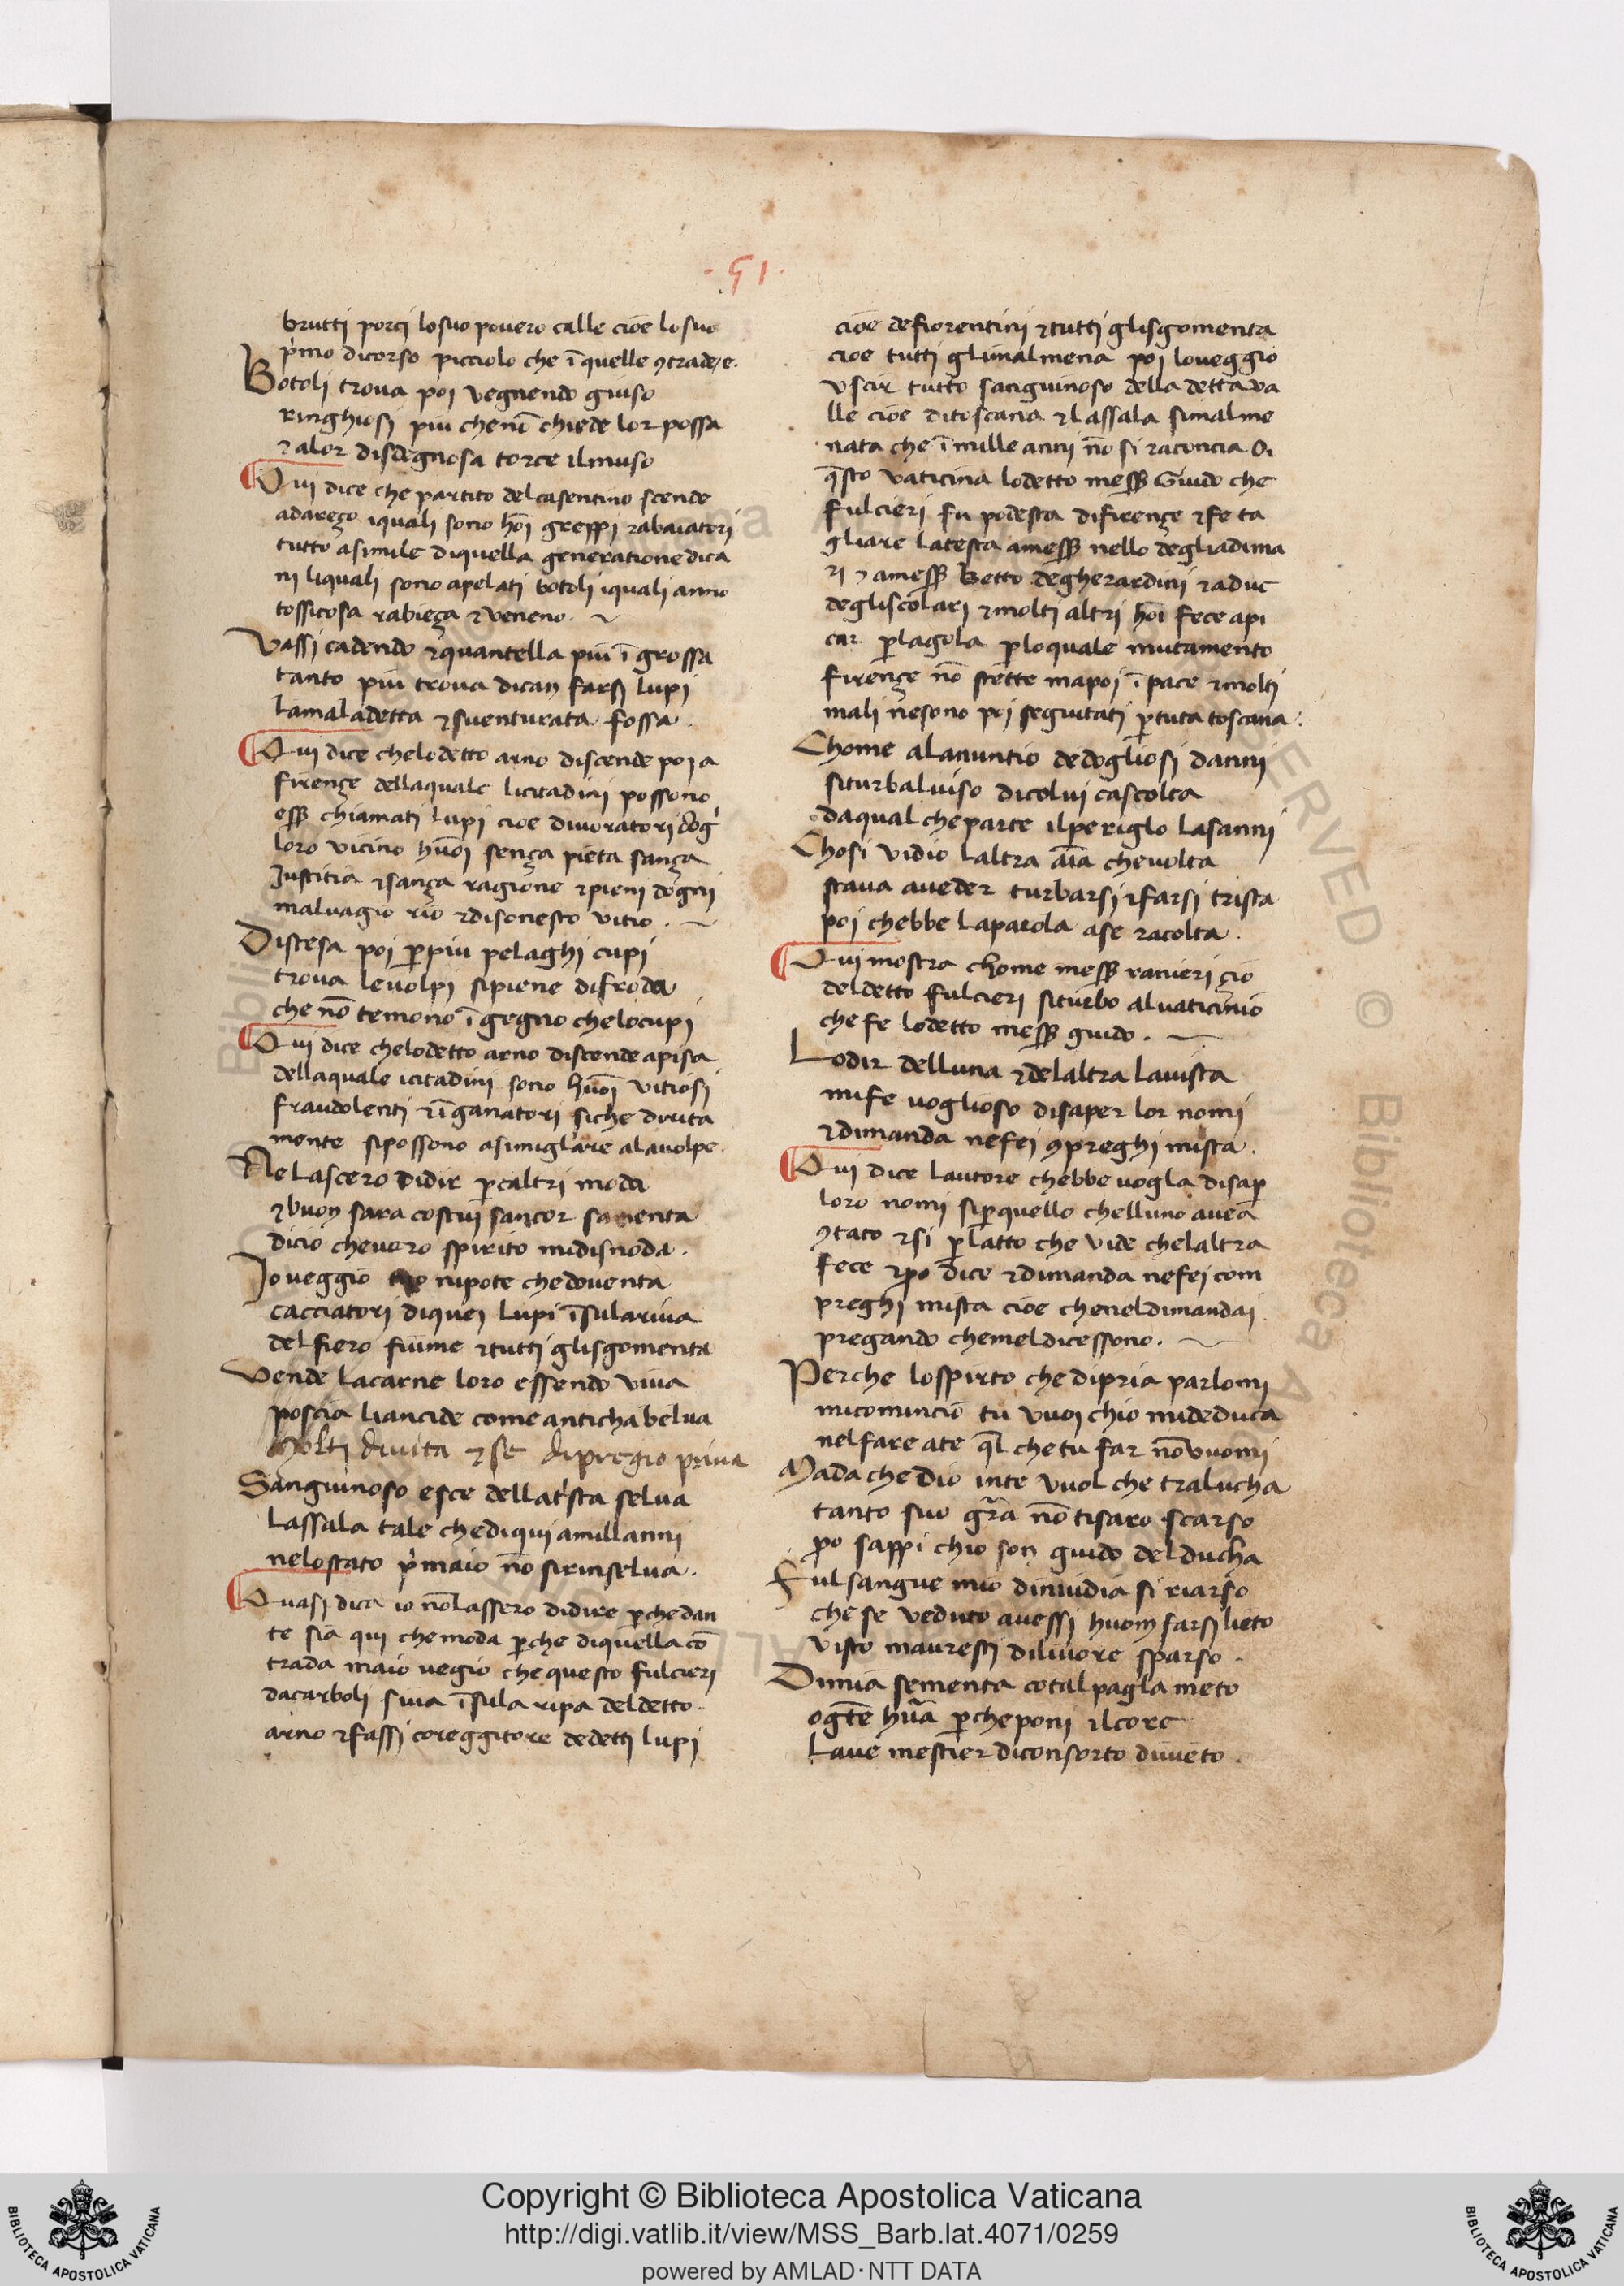 ·51·
brutti porci lo suo povero calle cioe lo suo
p̓mo dicorso picciolo che ī quelle ꝯtrade, e.
Botoli trova poi vegnendo giuso
ringhiosi piu chenō chiede lor possa
⁊ alor disdegnosa torce ilmuso
Qui dice che partito del casentino scende
adareço iquali sono hōi greppi ⁊abaiatori
tutto asimile diquella generatione dica
ni liquali sono apelati botoli iquali anno
tossicosa rabieça ⁊ veneno.
Vassi cadendo ⁊quantella piu īgrossa
tanto piu trova dican farsi lupi
lamaladetta ⁊sventurata fossa.
Qui dice chelodetto arno discende poi a
firençe dellaquale licitadini possono
ess̄ chiamati lupi cioe divoratori dog̓
loro vicino huōi sença pieta sança
Justitia ⁊sança ragione ⁊pieni dogni
malvagio rio ⁊disonesto vitio.
Discesa poi ꝑpiu pelaghi cupi
trova levolpi sipiene difroda
che nō temono īgegno chelocupi
Qui dice chelodetto arno discende apisa
dellaquale icitadini sono huōi vitiosi
fraudolenti ⁊īganatori siche dirita
mente sipossono asimiglare alavolpe.
Ne lascero didir ꝑcaltri moda
⁊buon sara costui sancor samenta
dicio chevero spirito midisnoda.
Jo veggio tuo nipote chedoventa
cacciatori diquei lupi īsulariva
del fiero fiume ⁊tutti glisgomenta
Vende lacarne loro essendo viva
poscia liancide come anticha belva
Molti divita ⁊ se dipregio priva
Sanguinoso esce dellat̓sta selva
lassala tale chediqui amillanni
nelostato p̓maio nō sirinselva.
Quasi dica io nōlassero didire ꝑchedan
te sia qui chemoda ꝑche diquella cō
trada maio vegio che questo fulcieri
dacarboli siva īsula ripa deldetto
arno ⁊fassi coreggitore dedetti lupi
cioe defiorentini ⁊tutti glisgomenta
cioe tutti glimalmena poi loveggio
uscir tutto sanguinoso della detta va
lle cioe ditoscana ⁊lassala simalme
nata che ī mille anni nō si raconcia Di
q̄sto vaticina lodetto mess̄ Guido che
fulcieri fu podesta difirençe ⁊fe ta
gliare latesta amess̄ nello degliadima
ri ⁊ amess̄ Betto degherardini ⁊aduc
degliscolari ⁊molti altri hōi fece api
car ꝑlagola ꝑloquale mutamento
firençe nō stette mapoi ī pace ⁊molti
mali nesono poi seguitati ꝑtuta toscana.
Chome alanuntio dedogliosi danni
siturbalviso dicolui cascolta
daqual cheparte ilperiglo lasanni
Chosi vidio laltra aīa chevolta
stava aveder turbarsi ⁊farsi trista
poi chebbe laparola ase racolta.
Qui mostra chome mess̄ ranieri çio
deldetto fulcieri siturbo alvaticinio
che fe lodetto mess̄ guido.
Lodir delluna ⁊delaltra lavista
mife voglioso disaper lor nomi
⁊dimanda nefei ꝯpreghi mista.
Qui dice lautore chebbe vogla disaꝑ
loro nomi siꝑquello chelluno aveā
ꝯtato ⁊si ꝑlatto che vide chelaltra
fece ⁊ꝑo dice ⁊dimanda nefei com
preghi mista cioe cheneldimandai
pregando chemeldicessono.
Perche lospirto che dipria parlomi
micomincio tu vuoi chio mideduca
nelfare ate q̄l chetu far nōvuomi
Mada che dio inte vuol che tralucha
tanto suo gr̄a nō tisaro scarso
ꝑo sappi chio son guido delducha
Fulsangue mio dinvidia si riarso
che se veduto avessi huom farsi lieto
visto mavresti dilivore sparso.
Dimia sementa cotal pagla meto
ogēte hūa ꝑcheponi ilcore
lave mestier diconsorto divieto.
Copyright © Biblioteca Apostolica Vaticana
http://digi.vatlib.it/view/MSS_Barb.lat.4071/0259
powered by AMLAD·NTT DATA
BIBLIOTECA APOSTOLICA VATICANA
BIBLIOTECA APOSTOLICA VATICANA